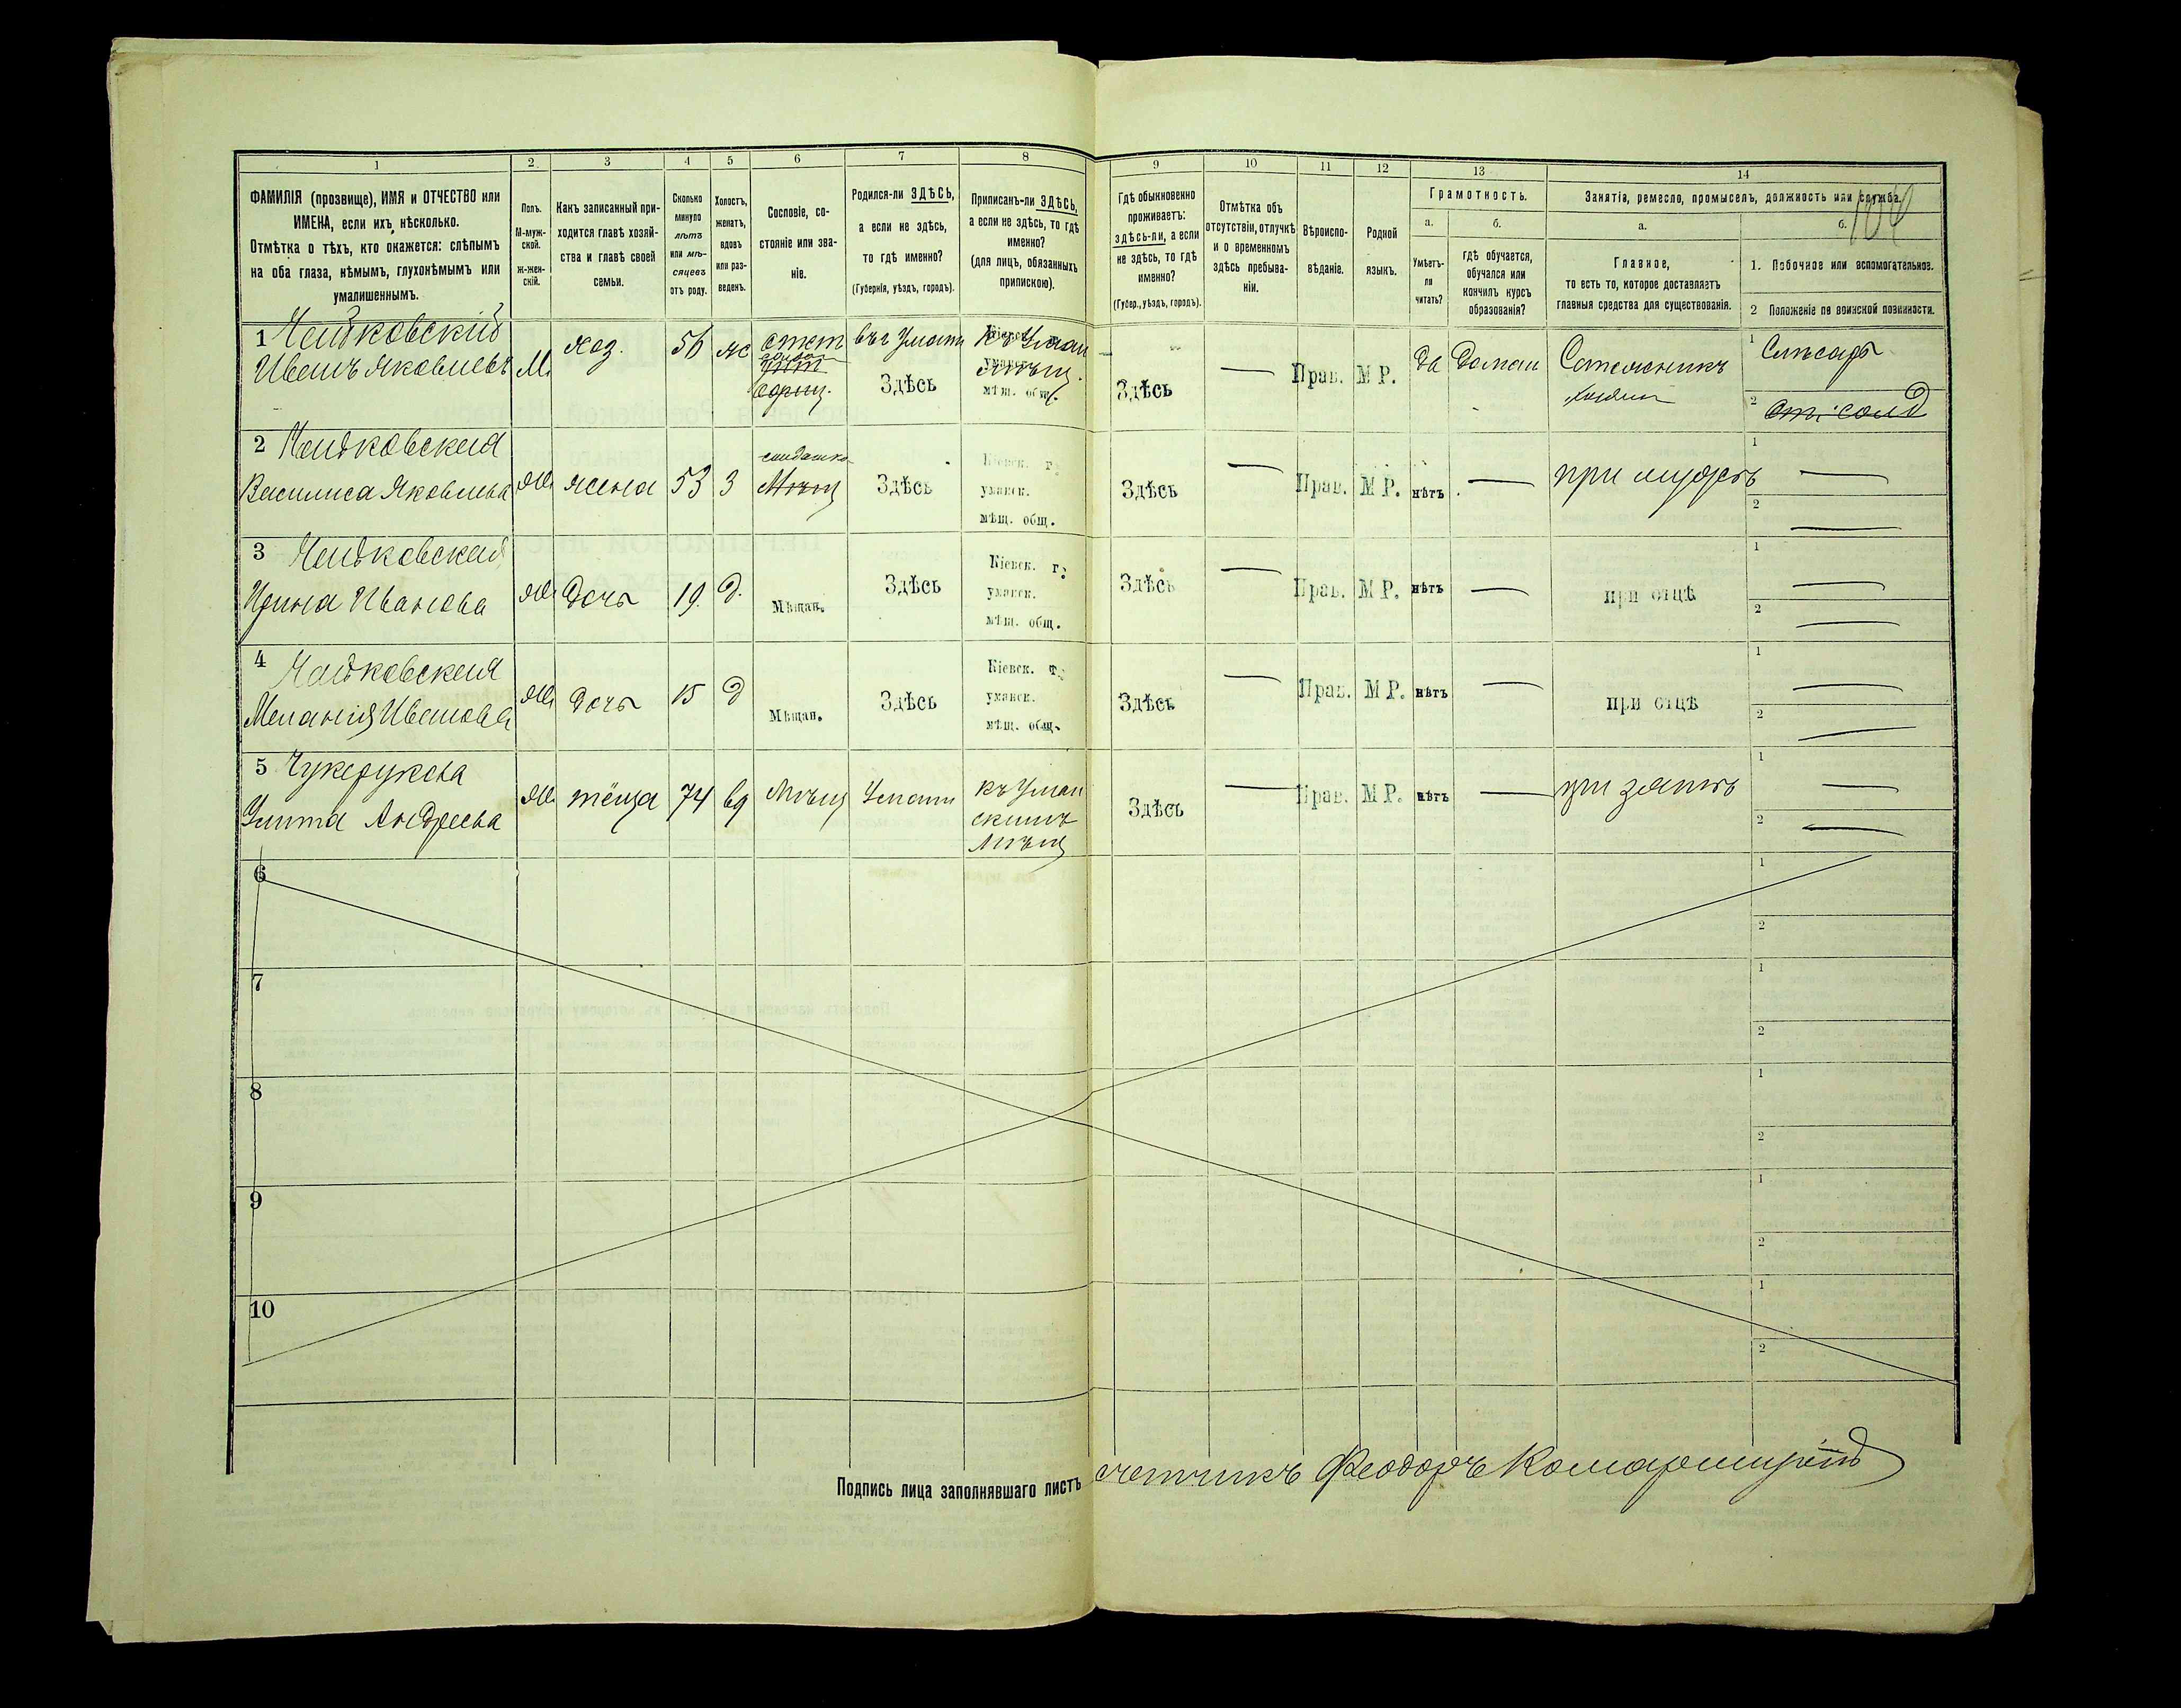 1 2 3 4 5 6 7 8 9 10 11 12 13 14
ФАМИЛІЯ (прозвище), ИМЯ и ОТЧЕСТВО или
ИМЕНА, если ихъ нѣсколько.
Отмѣтка о тѣхъ, кто окажется: слѣпымъ
на оба глаза, нѣмымъ, глухонѣмымъ или
умалишеннымъ.
Полъ.
М-муж-
ской.
ж-жен-
скій.
Какъ записанный при-
ходится главѣ хозяй-
ства и главѣ своей
семьи.
Сколько
минуло
лѣтъ
или мѣ-
сяцевъ
отъ роду.
Холостъ,
женатъ,
вдовъ
или раз-
веденъ.
Сословіе, со-
стояніе или зва-
ніе.
Родился-ли ЗДѢСЬ,
а если не здѣсь,
то гдѣ именно?
(Губернія, уѣздъ, городъ).
Приписанъ-ли ЗДѢСЬ,
а если не здѣсь, то гдѣ
именно?
(для лицъ, обязанныхъ
припискою).
Гдѣ обыкновенно
проживаетъ:
здѣсь-ли, а если
не здѣсь, то гдѣ
именно?
(Губер., уѣздъ, городъ).
Отмѣтка объ
отсутствіи, отлучкѣ
и о временномъ
здѣсь пребыва-
ніи.
Вѣроиспо-
вѣданіе.
Родной
языкъ.
Грамотность.
а.
Умѣетъ-
ли
читать?
б.
гдѣ обучается,
обучался или
кончилъ курсъ
образованія?
Занятія, ремесло, промыселъ, должность или служба.
104
а.
Главное,
то есть то, которое доставляетъ
главныя средства для существованія.
б.
1. Побочное или вспомогательное.
2 Положеніе по воинской повинности.
1 Чайковскій
Иванъ Яковлевъ
М.
хоз.
56
ж
отст
унт
въ г Умани
Здѣсь
Къ Уман
мѣщ.
Здѣсь
Прав.
М Р.
да
Дома
хозяин
1 Слѣсарь
2 От. солд
2 Чайковская
Василиса Яковлева
ж.
жена
53
З
солдатка
Мѣщ
Здѣсь
Кіевск. г.
уманск.
мѣщ. общ.
Здѣсь
Прав.
М Р.
нѣтъ
при мужѣ
1
2
3 Чайковская
Ирина Иванова
ж.
Дочь
19.
д.
Мѣщан.
Здѣсь
Кіевск. г.
уманск.
мѣщ. общ.
Здѣсь
Прав.
М Р.
нѣтъ
при отцѣ
1
2
4 Чайковская
Меланія Иванова
ж.
дочь
15
д
Мѣщан.
Здѣсь
Кіевск. г.
уманск.
мѣщ. общ.
Здѣсь
Прав.
М Р.
нѣтъ
при отцѣ
1
2
5
Улита Андреева
ж.
тёща
74
вд
Мѣщ
Умани
къ Уман
скимъ
Мѣщ
Здѣсь
Прав.
М Р.
нѣтъ
при зятѣ
1
2
6
1
2
7
1
2
8
1
2
9
1
2
10
1
2
Подпись лица заполнявшаго листъ счетчикъ Феодоръ